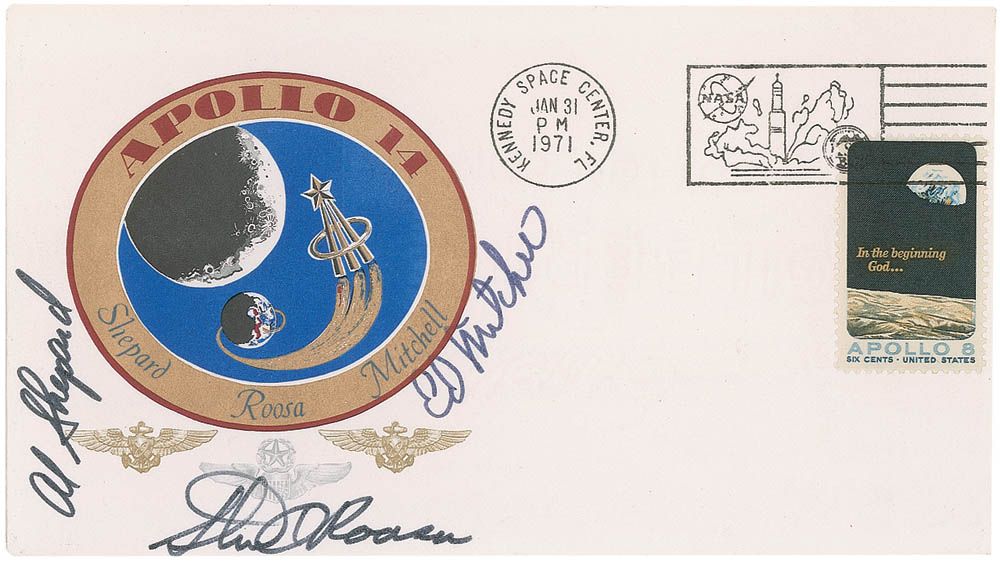 APOLLO 14
Shepard
Roosa
Mitchell
KENNEDY SPACE CENTER, FL
JAN 31
PM
1971
NASA
In the beginning
God...
APOLLO 8
SIX CENTS · UNITED STATES
Al Shepard
Stuart Roosa
Ed Mitchell